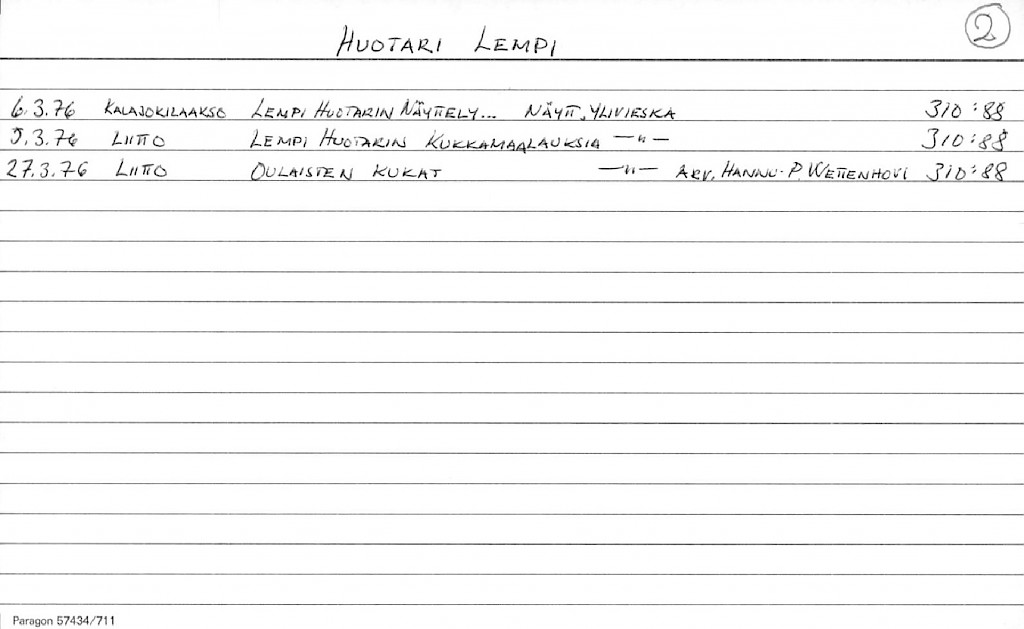 HUOTARI LEMPI
2
6.3.76 KALAJOKILAAKSO LEMPI HUOTARIN NÄYTTELY... NÄYTT, YLIVIESKA 310:88
9.3.76 LIITTO LEMPI HUOTARIN KUKKAMAALAUKSIA —"— 310:88
27.3.76 LIITTO OULAISTEN KUKAT —"— ARV. HANNU-P. WETTENHOVI 310:88
Paragon 57434/711